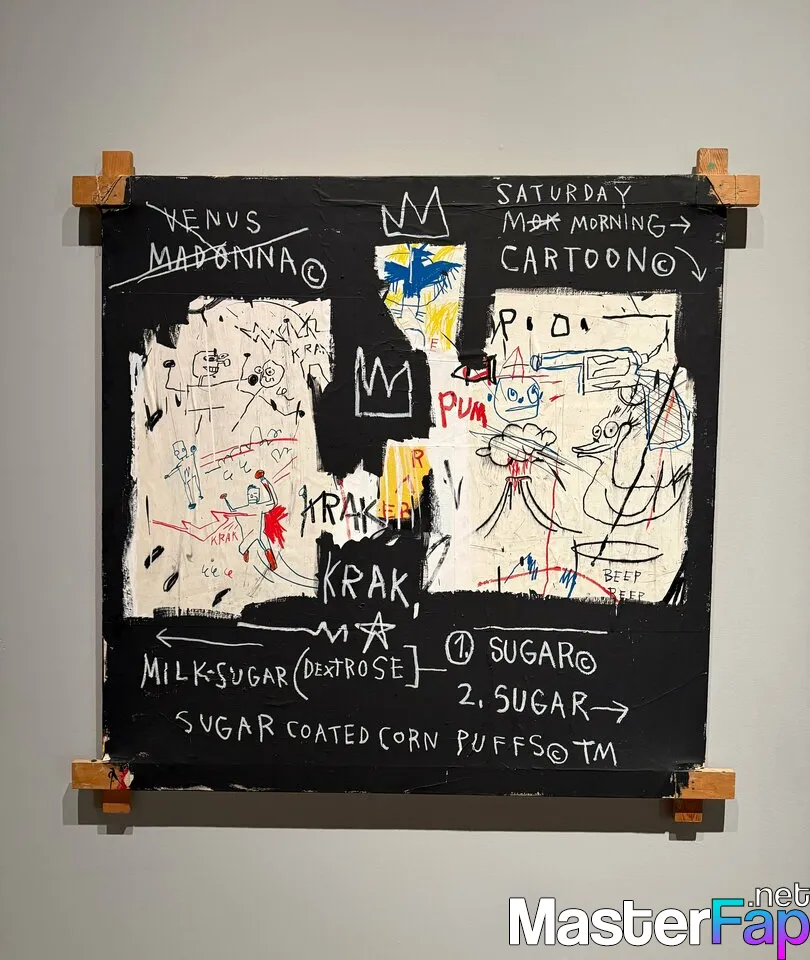 VENUS
MADONNA©
SATURDAY
MORNING→
CARTOON©
KRA
P.O.
PUM
E
R
KRAK
EB
KRAK
KRAK,
BEEP
BEEP
MILK-SUGAR (DEXTROSE]
1. SUGAR©
2. SUGAR→
SUGAR COATED CORN PUFFS© TM
MasterFap.net